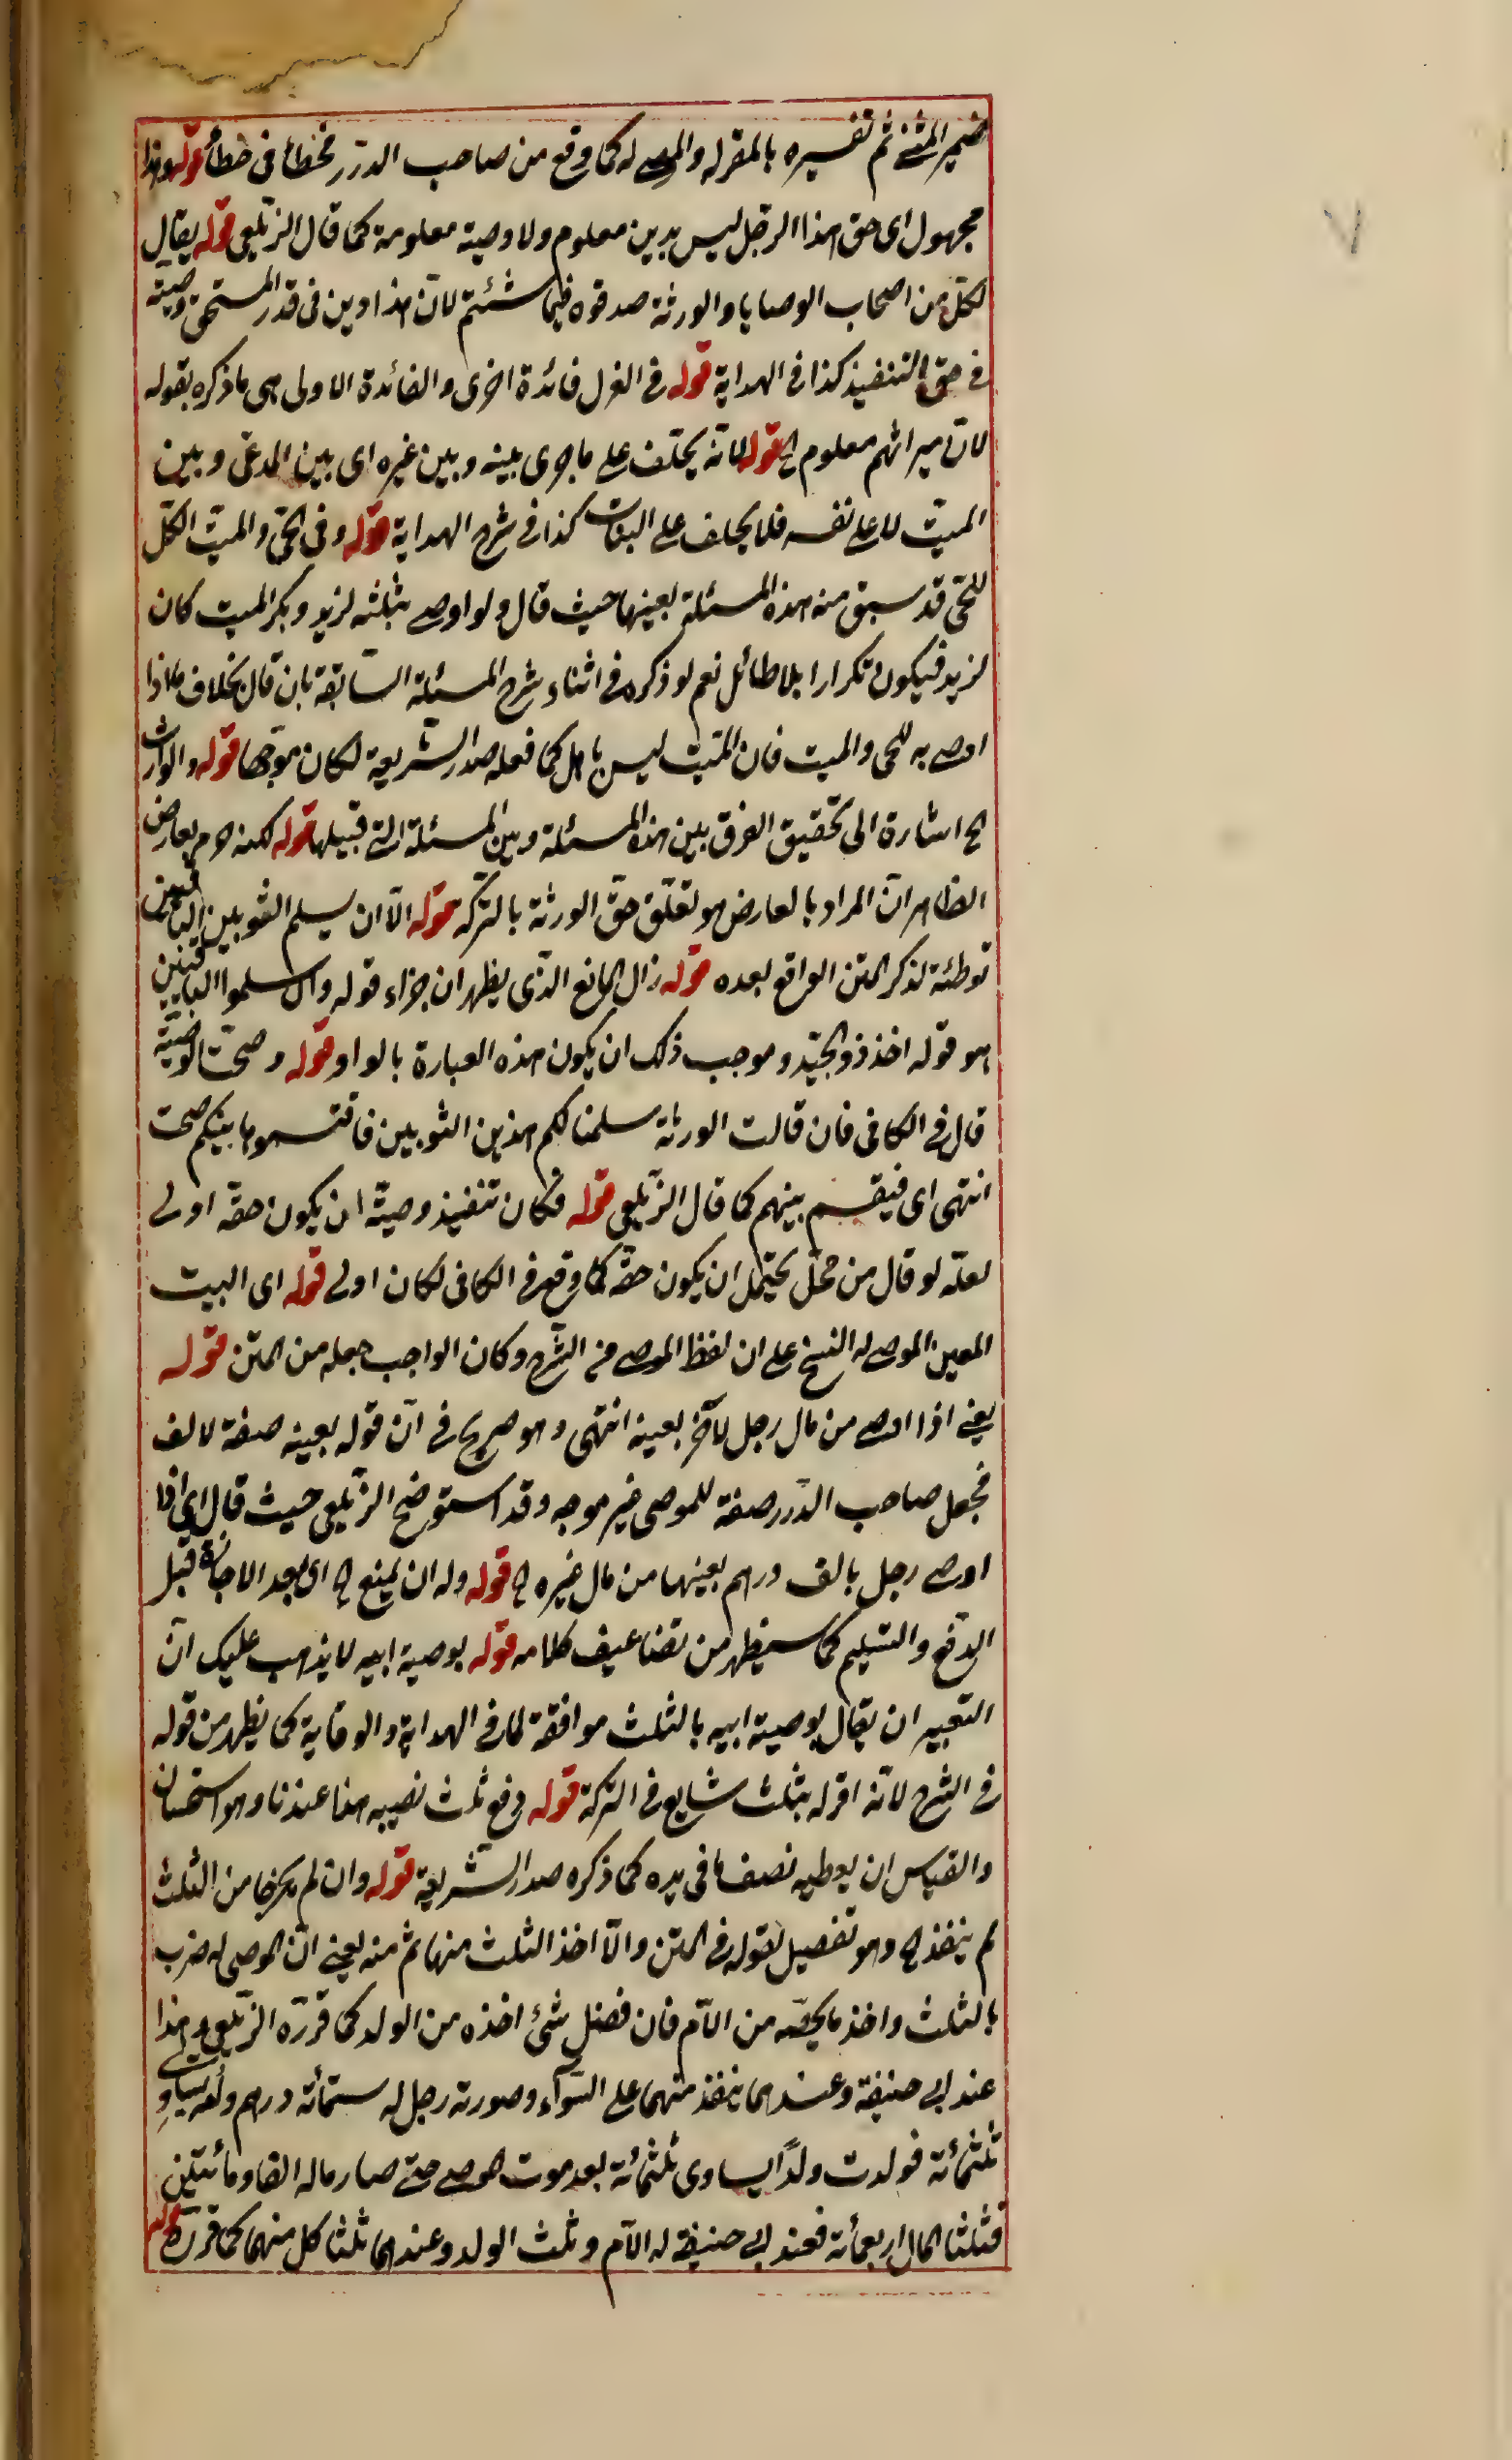 ضمير المثنى ثم تفسيره بالمقر له والموصى له كما وقع من صاحب الدرر فخطأ فى خطأ قوله وهذا
مجهول اى حق هذا الرجل ليس بدين معلوم ولا وصية معلومة كما قال الزيلعى قوله يقال
لكل من اصحاب الوصايا والورثة صدقوه فيما شئتم لان هذا دين فى قدر المستحق وصية
فى حق التنفيذ كذا فى الهداية قوله فى العزل فائدة اخرى والفائدة الاولى هى ما ذكره بقوله
لان ميراثهم معلوم الخ قوله لانه يحلف على ما جرى بينه وبين غيره اى بين المدعى وبين
الميت لا على نفسه فلا يحلف على البتات كذا فى شرح الهداية قوله وفى الحى والميت الكل
للحى قد سبق منه هذه المسئلة بعينها حيث قال ولو اوصى بثلثه لزيد وبكر الميت كان
لزيد فيكون تكرارا بلا طائل نعم لو ذكره فى اثناء شرح المسئلة السابقة بان قال بخلاف ما اذا
اوصى به للحى والميت فان الميت ليس باهل كما فعله صدر الشريعة لكان موجها قوله والوارث
الخ اشارة الى تحقيق الفرق بين هذه المسئلة وبين المسئلة التى قبيلها قوله لكنه حرم بعارض
الظاهر ان المراد بالعارض هو تعلق حق الورثة بالتركة قوله الا ان يسلم الثوبين الباقيين
توطئة لذكر المتن الواقع بعده قوله زال المانع الذى يظهر ان جزاء قوله وان سلموا الباقيين
هو قوله اخذ ذو الجيد وموجب ذلك ان يكون هذه العبارة بالواو قوله وصحت الوصية
قال فى الكافى فان قالت الورثة سلمنا لكم هذين الثوبين فاقتسموها بينكم صحت
انتهى اى فيقسم بينهم كما قال الزيلعى قوله فكان تنفيذ وصيته ان يكون حقه اولى
لعله لو قال من محل يحتمل ان يكون حقه كما وقع فى الكافى لكان اولى قوله اى البيت
المعين الموصى له النسخ على ان لفظ الموصى من الشرح وكان الواجب جعله من المتن قوله
يعنى اذا اوصى من مال رجل لآخر بعينه انتهى وهو صريح فى ان قوله بعينه صفة لالف
فجعل صاحب الدرر صفة للموصى غير موجه وقد استوضح الزيلعى حيث قال اى اذا
اوصى رجل بالف درهم بعينها من مال غيره الخ قوله وله ان يمنع الخ اى بعد الاجازة قبل
الدفع والتسليم كما سيظهر من تضاعيف كلامه قوله بوصية ابيه لا يذهب عليك ان
التعبير ان يقال بوصية ابيه بالثلث موافقة لما فى الهداية والوقاية كما يظهر من قوله
فى الشرح لانه اقر له بثلث شايع فى التركة قوله دفع ثلث نصيبه هذا عندنا وهو استحسان
والقياس ان يعطيه نصف ما فى يده كما ذكره صدر الشريعة قوله وان لم يخرجا من الثلث
لم ينفذ الخ وهو تفصيل لقوله فى المتن والا اخذ الثلث منها ثم منه يعنى ان الموصى له ضرب
بالثلث واخذ ما يخصه من الام فان فضل شئ اخذه من الولد كما قرره الزيلعى وهذا
عند ابى حنيفة وعندهما ينفذ منهما على السوآء وصورته رجل له ستمائة درهم وامة تساوى
ثلثمائة فولدت ولدا يساوى ثلثمائة بعد موت الموصى حتى صار ماله الفا ومأيتين
فثلث المال اربعمائة فعند ابى حنيفة له الام وثلث الولد وعندهما ثلثا كل منهما كما قرره